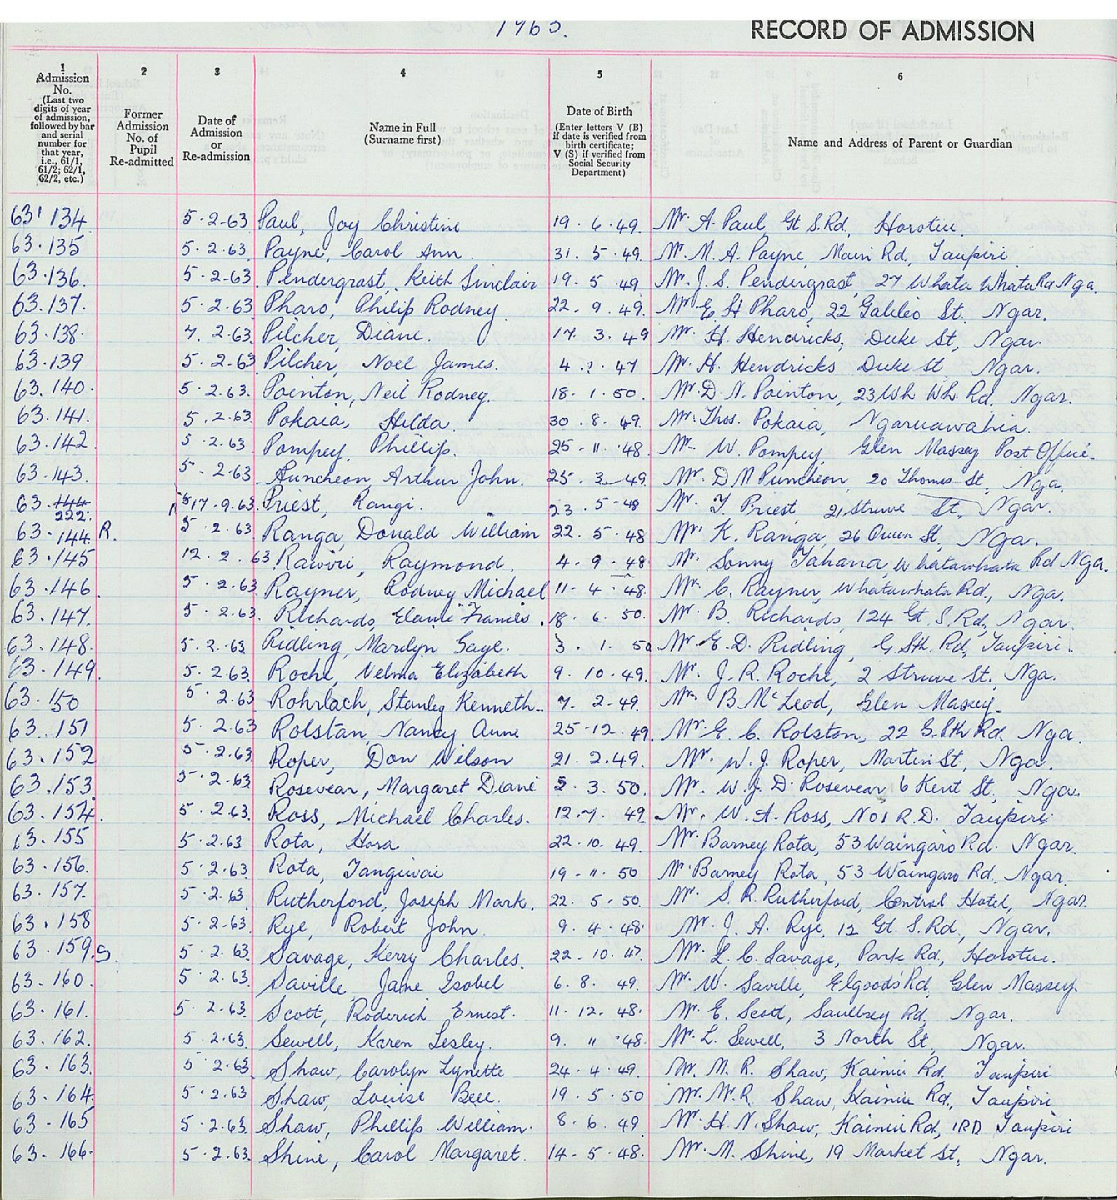 1963.
RECORD OF ADMISSION
1 2 3 4 5 6
Admission No. (Last two digits of year of admission, followed by bar and serial number for that year, i.e., 61/1, 61/2; 62/1, 62/2, etc.)
Former Admission No. of Pupil Re-admitted
Date of Admission or Re-admission
Name in Full (Surname first)
Date of Birth (Enter letters V (B) if date is verified from birth certificate; V (S) if verified from Social Security Department)
Name and Address of Parent or Guardian
63.134 5.2.63 Paul, Joy Christine 19.6.49. Mr A Paul, Gt S.Rd, Horotiu.
63.135 5.2.63. Payne, Carol Ann 31.5.49. Mr. M. A Payne, Main Rd, Taupiri
63.136. 5.2.63 Pendergrast Keith Sinclair 19.5 49 Mr. J. S. Pendergrast 27 Whata Whata Rd Nga.
63.137. 5.2.63 Pharo, Philip Rodney. 22.9.49. Mr E H Pharo, 22 Galileo St, Ngar.
63.138. 7.2.63. Pilcher, Diane. 17.3.49 Mr H. Hendricks, Duke St, Ngar.
63.139 5.2.63 Pilcher, Noel James. 4 . 47 Mr. H. Hendricks Duke St Ngar.
63.140. 5.2.63. Pointon, Neil Rodney. 18.1.50 Mr. D. N. Pointon, 23 Wh Wh Rd. Ngar.
63.141. 5.2.63 Pokaia, Hilda. 30.8.49. Mr. Thos. Pokaia, Ngaruawahia.
63.142 5.2.63. Pompey, Phillip. 25.11.48 Mr. W. Pompey Glen Massey Post Office.
63.143. 5.2.63 Puncheon, Arthur John. 25.3.49 Mr. D M Puncheon, 20 Thomas St, Nga.
63.144 222. 17.9.63 Priest, Rangi. 23.5.48 Mr. T. Priest 21 Struve St. Ngar.
63.144 R. 5.2.63 Ranga, Donald William 22.5.48 Mr. K. Ranga, 26 Queen St, Nga.
63.145 12.2.63 Rawiri, Raymond. 4.9.48. Mr. Sonny Tahana Whatawhata Rd Nga.
63.146 5.2.63. Rayner, Rodney Michael 11.4.48. Mr. C. Rayner, Whatawhata Rd, Nga.
63.147. 5.2.63. Richards, Elaine Frances. 18.6.50. Mr B. Richards, 124 Gt. S. Rd, Ngar.
63.148. 5.2.63 Ridling, Marilyn Gaye. 3.1.50 Mr E. D. Ridling, G Sth. Rd, Taupiri.
63.149. 5.2.63. Roche, Velma Elizabeth 9.10.49. Mr. J. R. Roche, 2 Struve St, Nga.
63.150 5.2.63 Rohrlach, Stanley Kenneth. 7.2.49. Mr. B. McLeod, Glen Massey.
63.151 5.2.63 Rolston Nancy Anne 25.12.49. Mr. G. C. Rolston, 22 G. Sth Rd. Nga.
63.152 5.2.63. Roper, Don Wilson 21.2.49. Mr. W. J. Roper, Martin St, Nga.
63.153 5.2.63. Rosevear, Margaret Diane 3.50. Mr. W. J. D. Rosevear, 6 Kent St, Nga.
63.154. 5.2.63. Ross, Michael Charles. 12.7.49. Mr. W. A. Ross, No 1 R.D. Taupiri
63.155 5.2.63 Rota, Hora 22.10.49. Mr Barney Rota, 53 Waingaro Rd. Ngar.
63.156. 5.2.63 Rota, Tangiwai 19.11.50 Mr. Barney Rota, 53 Waingaro Rd, Ngar.
63.157. 5.2.63. Rutherford, Joseph Mark. 22.5.50. Mr. S. R. Rutherford, Central Hotel, Ngar.
63.158 5.2.63. Rye, Robert John. 9.4.48 Mr. J. A. Rye, 12 Gt S. Rd, Ngar.
63.159. S. 5.2.63. Savage, Kerry Charles. 22.10.47. Mr. L. C. Savage, Park Rd, Horotiu.
63.160. 5.2.63. Saville, Jane Isobel 6.8.49. Mr. W. Saville, Elgoods Rd, Glen Massey
63.161. 5.2.63. Scott, Roderick Ernest. 11.12.48. Mr. E. Scott, Saulbrey Rd, Ngar.
63.162. 5.2.63. Sewell, Karen Lesley. 9.11.48. Mr. L. Sewell, 3 North St, Ngar.
63.163. 5.2.63. Shaw, Carolyn Lynette 24.4.49. Mr. M. R. Shaw, Kainui Rd, Taupiri
63.164 5.2.63 Shaw, Louise Bell. 19.5.50 Mr. M. R Shaw, Kainui Rd, Taupiri
63.165 5.2.63. Shaw, Phillip William. 8.6.49 Mr. H. N. Shaw, Kainui Rd, 1RD Taupiri
63.166. 5.2.63. Shine, Carol Margaret. 14.5.48. Mr. M. Shine, 19 Market St, Ngar.